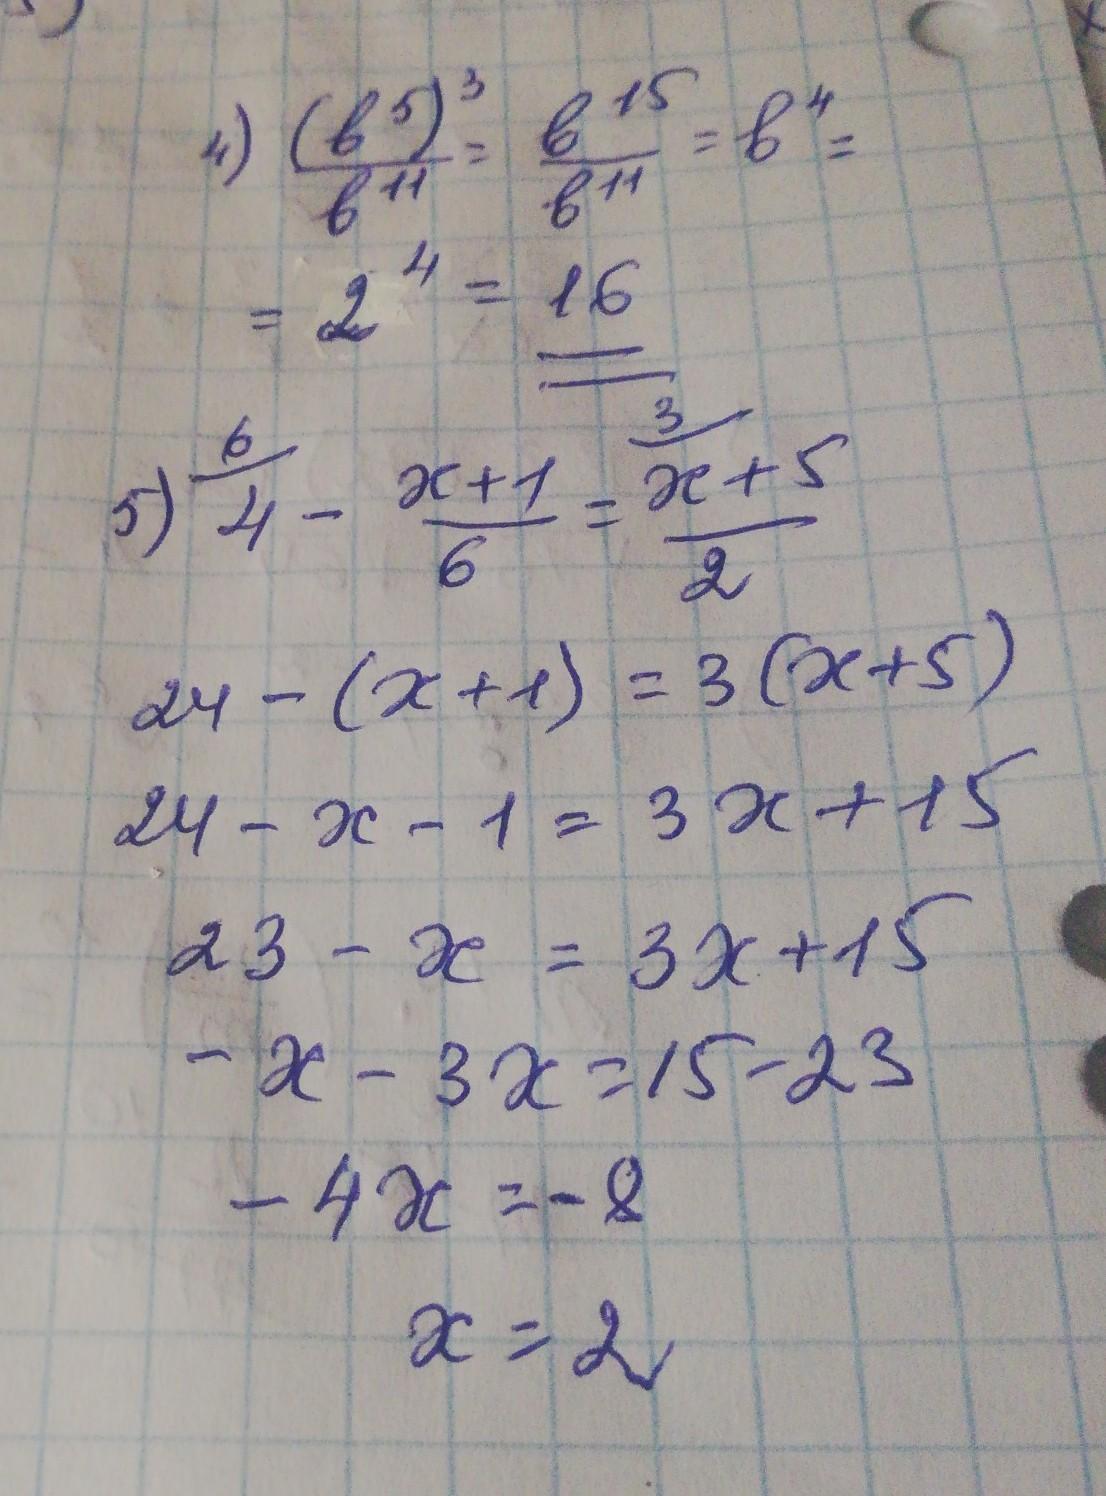 4) (b⁵)³/b¹¹ = b¹⁵/b¹¹ = b⁴ =
= 2⁴ = 16
5) ⁶⁄ 4 - (x+1)/6 = ³⁄ (x+5)/2
24 - (x+1) = 3(x+5)
24 - x - 1 = 3x + 15
23 - x = 3x + 15
- x - 3x = 15 - 23
- 4x = - 8
x = 2